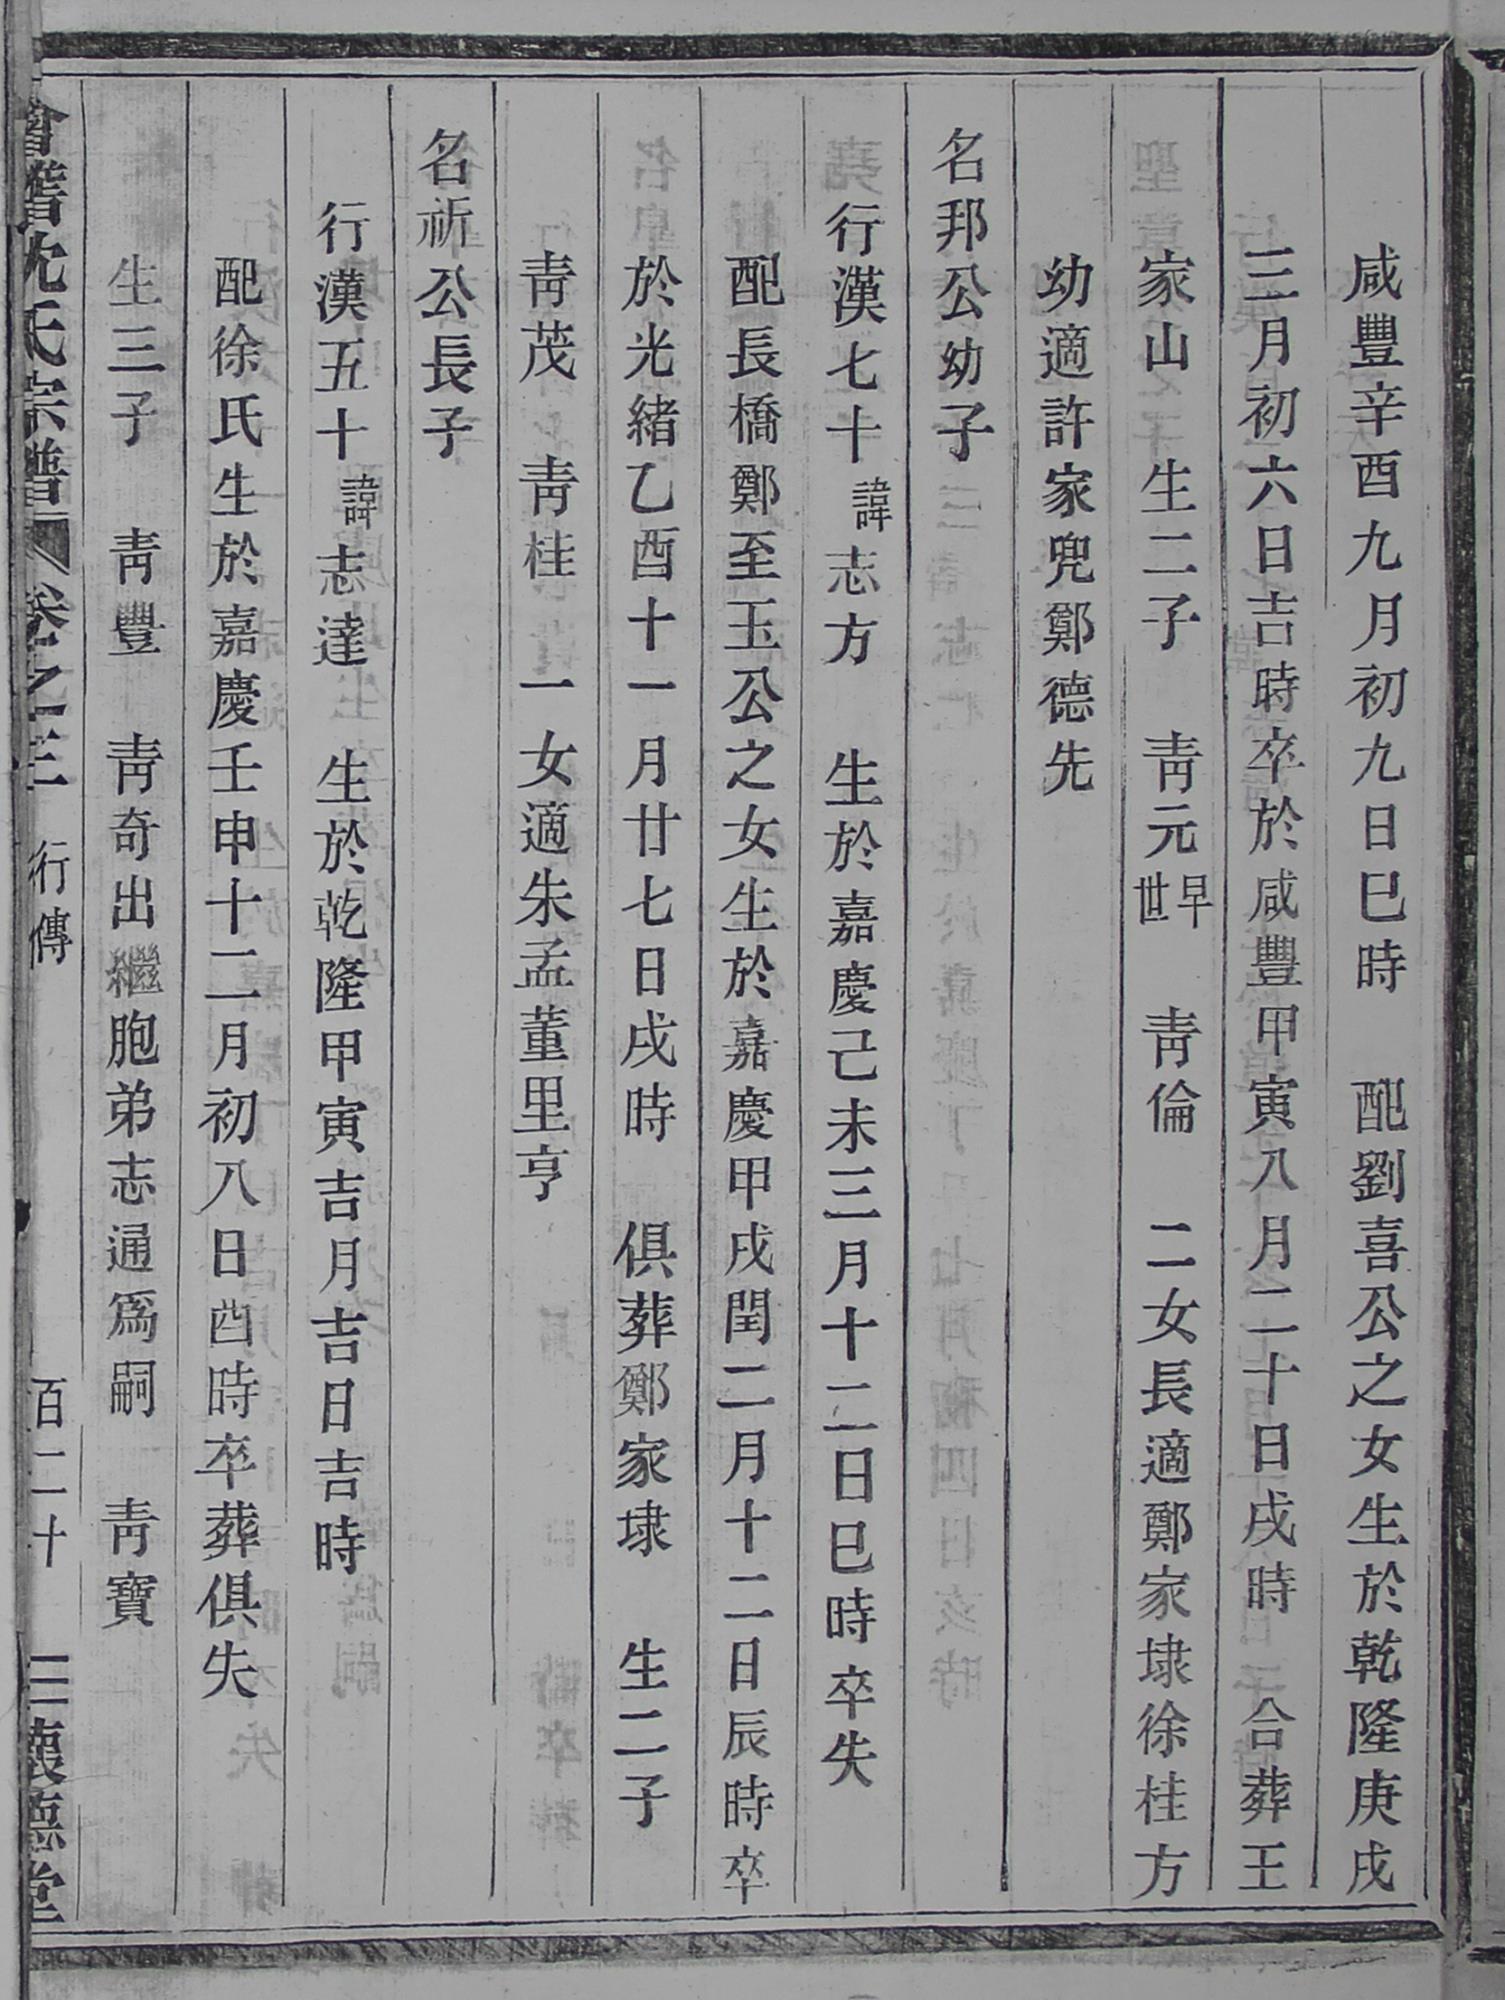 咸豐辛酉九月初九日巳時　配劉喜公之女生於乾隆庚戌
三月初六日吉時卒於咸豐甲寅八月二十日戌時　合葬王
家山　生二子　靑元早世　靑倫　二女長適鄭家埭徐桂方
幼適許家兜鄭德先
名邦公幼子
行漢七十諱志方　生於嘉慶己未三月十二日巳時卒失
配長橋鄭至玉公之女生於嘉慶甲戌閏二月十二日辰時卒
於光緒乙酉十一月廿七日戌時　俱葬鄭家埭　生二子
靑茂　靑桂　一女適朱孟董里亨
名祈公長子
行漢五十諱志達　生於乾隆甲寅吉月吉日吉時
配徐氏生於嘉慶壬申十二月初八日酉時卒葬俱失
生三子　靑豐　靑奇出繼胞弟志通爲嗣　靑寶
會稽沈氏宗譜　卷之三　行傳　百二十　三懷德堂